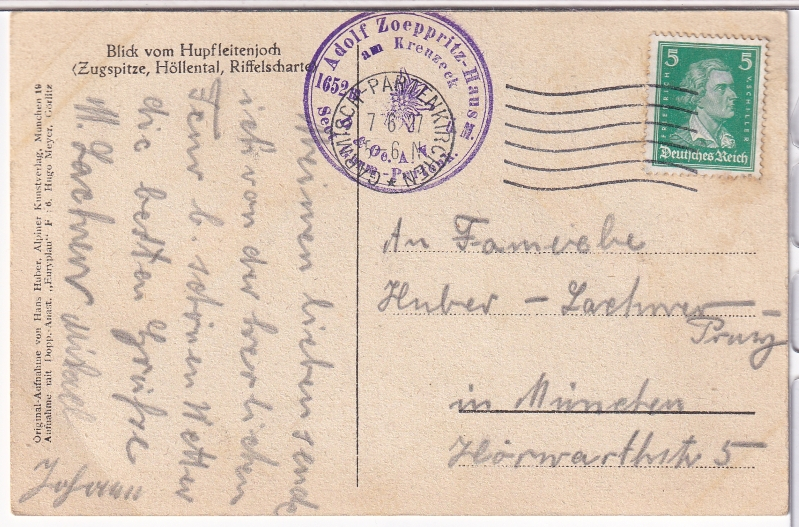 Blick vom Hupfleitenjoch
(Zugspitze, Höllental, Riffelscharte)
Original-Aufnahme von Hans Huber, Alpiner Kunstverlag, München 19
Aufnahme mit Dopp.-Anast. „Euryplan“ F : 6. Hugo Meyer, Görlitz
Adolf Zoeppritz-Haus
am Kreuzeck
1652
GARMISCH-PARTENKIRCHEN
5
5
FRIEDRICH
V. SCHILLER
Deutsches Reich
Meinen lieben sende
ich von der herrlichen
Tour b. schönen Wetter
die besten Grüße
Johann
An Famielie
Huber – Lachner –
in München
Hörwarthstr 5